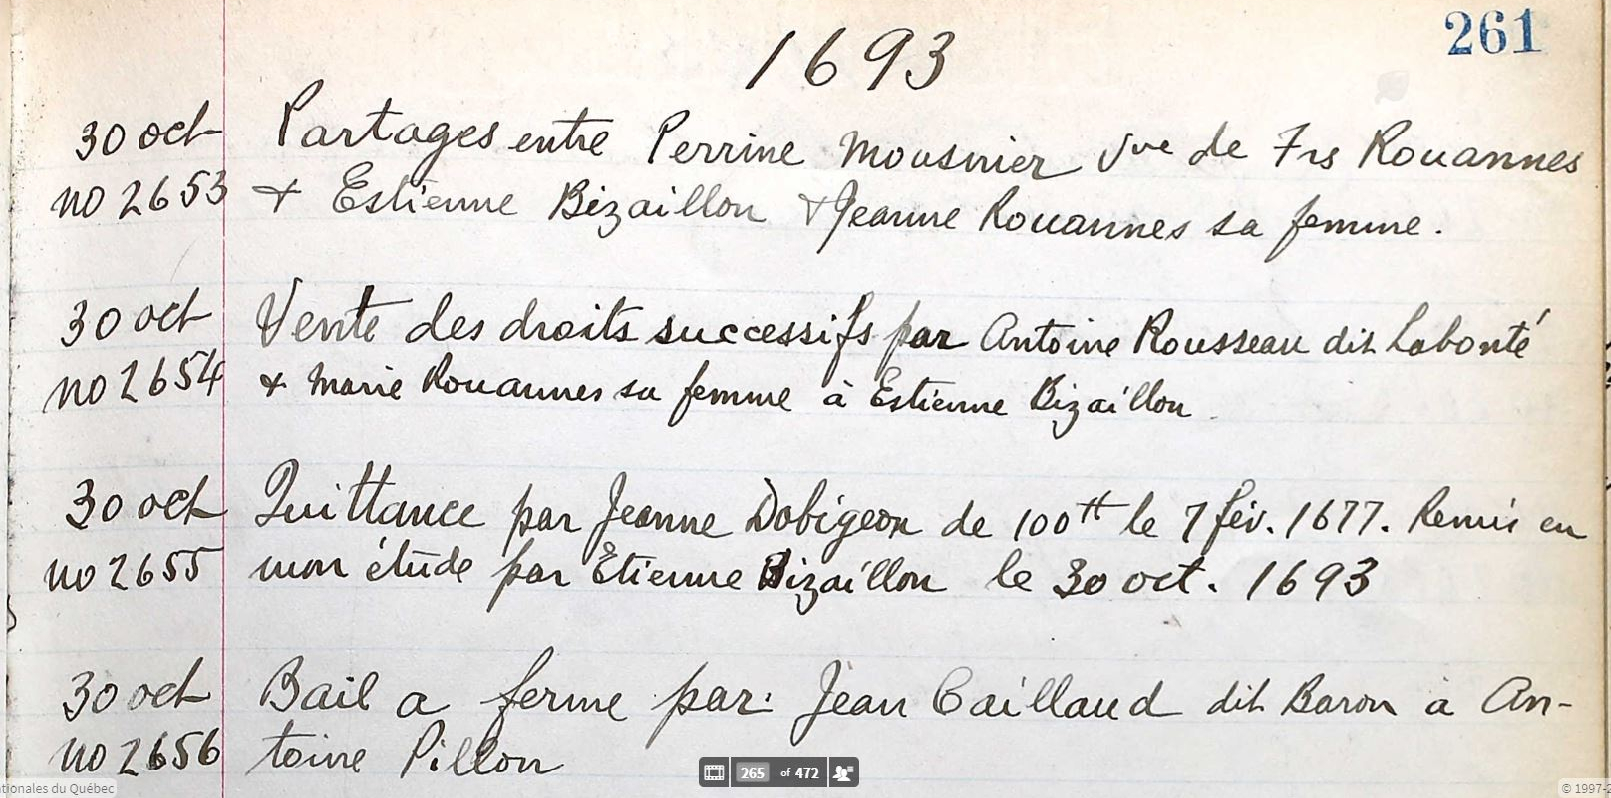 261
1693
30 oct Partages entre Perrine Mousnier Vve de Frs Rouannes
no 2653 & Estienne Bizaillon & Jeanne Rouannes sa femme.
30 oct Vente des droits successifs par Antoine Rousseau dit Labonté
no 2654 & Marie Rouannes sa femme à Estienne Bizaillon
30 oct Quittance par Jeanne Dobigeon de 100tt le 7 fév. 1677. Remis en
no 2655 mon étude par Etienne Bizaillon le 30 oct. 1693
30 oct Bail a ferme par Jean Caillaud dit Baron à An-
no 2656 toine Pillon
265 of 472
tionales du Québec
© 1997-2